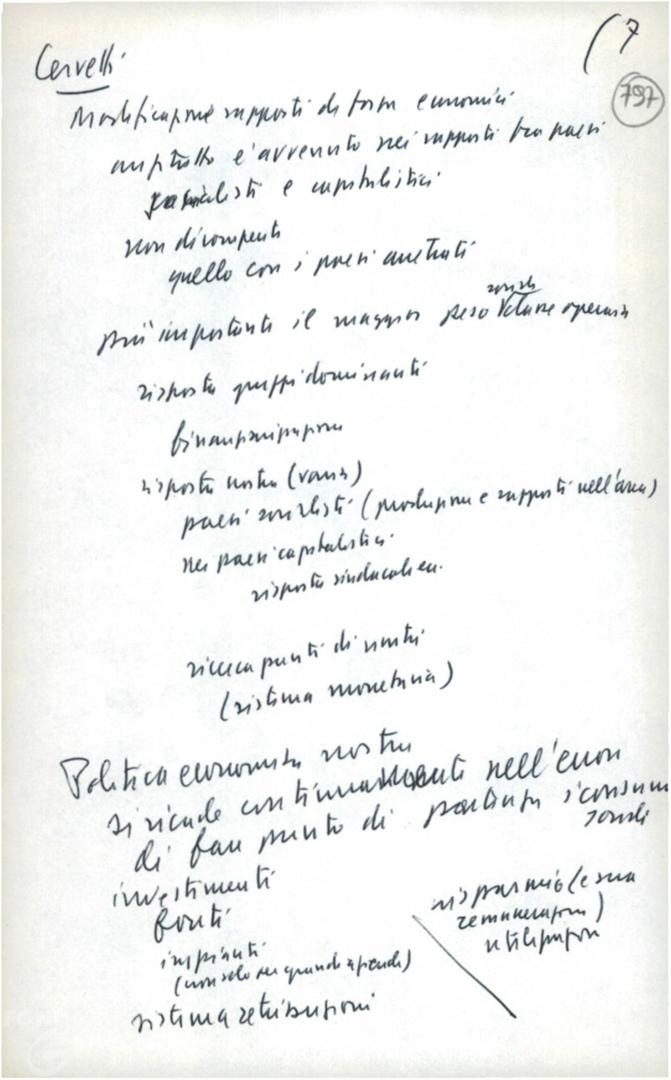 Cervetti
(7
797
Modificazione rapporti di forza economici
anzitutto è avvenuto nei rapporti tra paesi
socialisti e capitalistici
non dirompenti
quello con i paesi arretrati
più importante il maggior peso sociale classe operaia
risposta gruppi dominanti
finanziarizzazione
risposta nostra (varia)
paesi socialisti (produzione e rapporti nell'area)
nei paesi capitalistici
risposta sindacale ecc.
ricerca punti di
(sistema monetario)
Politica economica nostra
si ricade continuamente nell'errore
di fare punto di partenza i consumi
sociali
investimenti
fonti
risparmio (e sua
remunerazione)
utilizzazione
impianti
(non solo per grandi aziende)
sistema retribuzioni